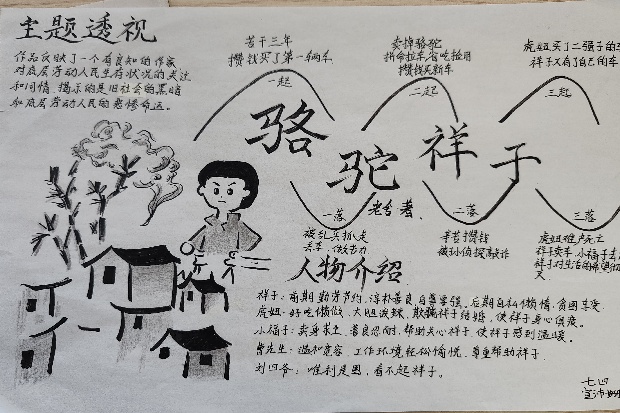 主题透视
作品反映了一个有良知的作家
对底层劳动人民生存状况的关注
和同情,揭示的是旧社会的黑暗
和底层劳动人民的悲惨命运。
苦干三年
攒钱买了第一辆车
一起
卖掉骆驼
拼命拉车省吃俭用
攒钱买新车
二起
虎妞买了二强子的
祥子又有了自己的车
三起
骆驼祥子
老舍 著
一落
被乱兵抓走
丢车
二落
辛苦攒钱
被孙侦探敲诈
三落
虎妞难产死亡
祥子卖车,小福子
祥子对生活的希望
灭
人物介绍
祥子:前期勤劳节约,淳朴善良,自尊要强。后期自私懒惰,贪图享受
虎妞:好吃懒做,大胆泼辣,欺骗祥子结婚,使祥子身心俱疲。
小福子:卖身养主,善良忍耐,帮助关心祥子,使祥子感到温暖。
曹先生:温和宽容,工作环境轻松愉悦,尊重帮助祥子。
刘四爷:唯利是图,看不起祥子。
七四